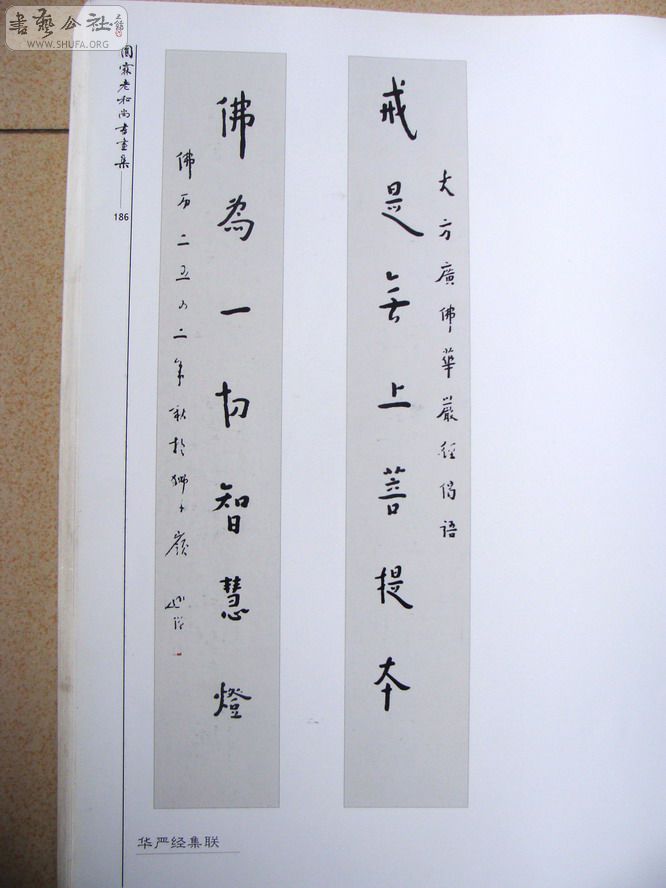 書藝公社
WWW.SHUFA.ORG
圆霖老和尚书画集
186
大方廣佛華嚴經偈语
戒是无上菩提本
佛為一切智慧燈
佛历二五五二年秋於狮子嶺
华严经集联